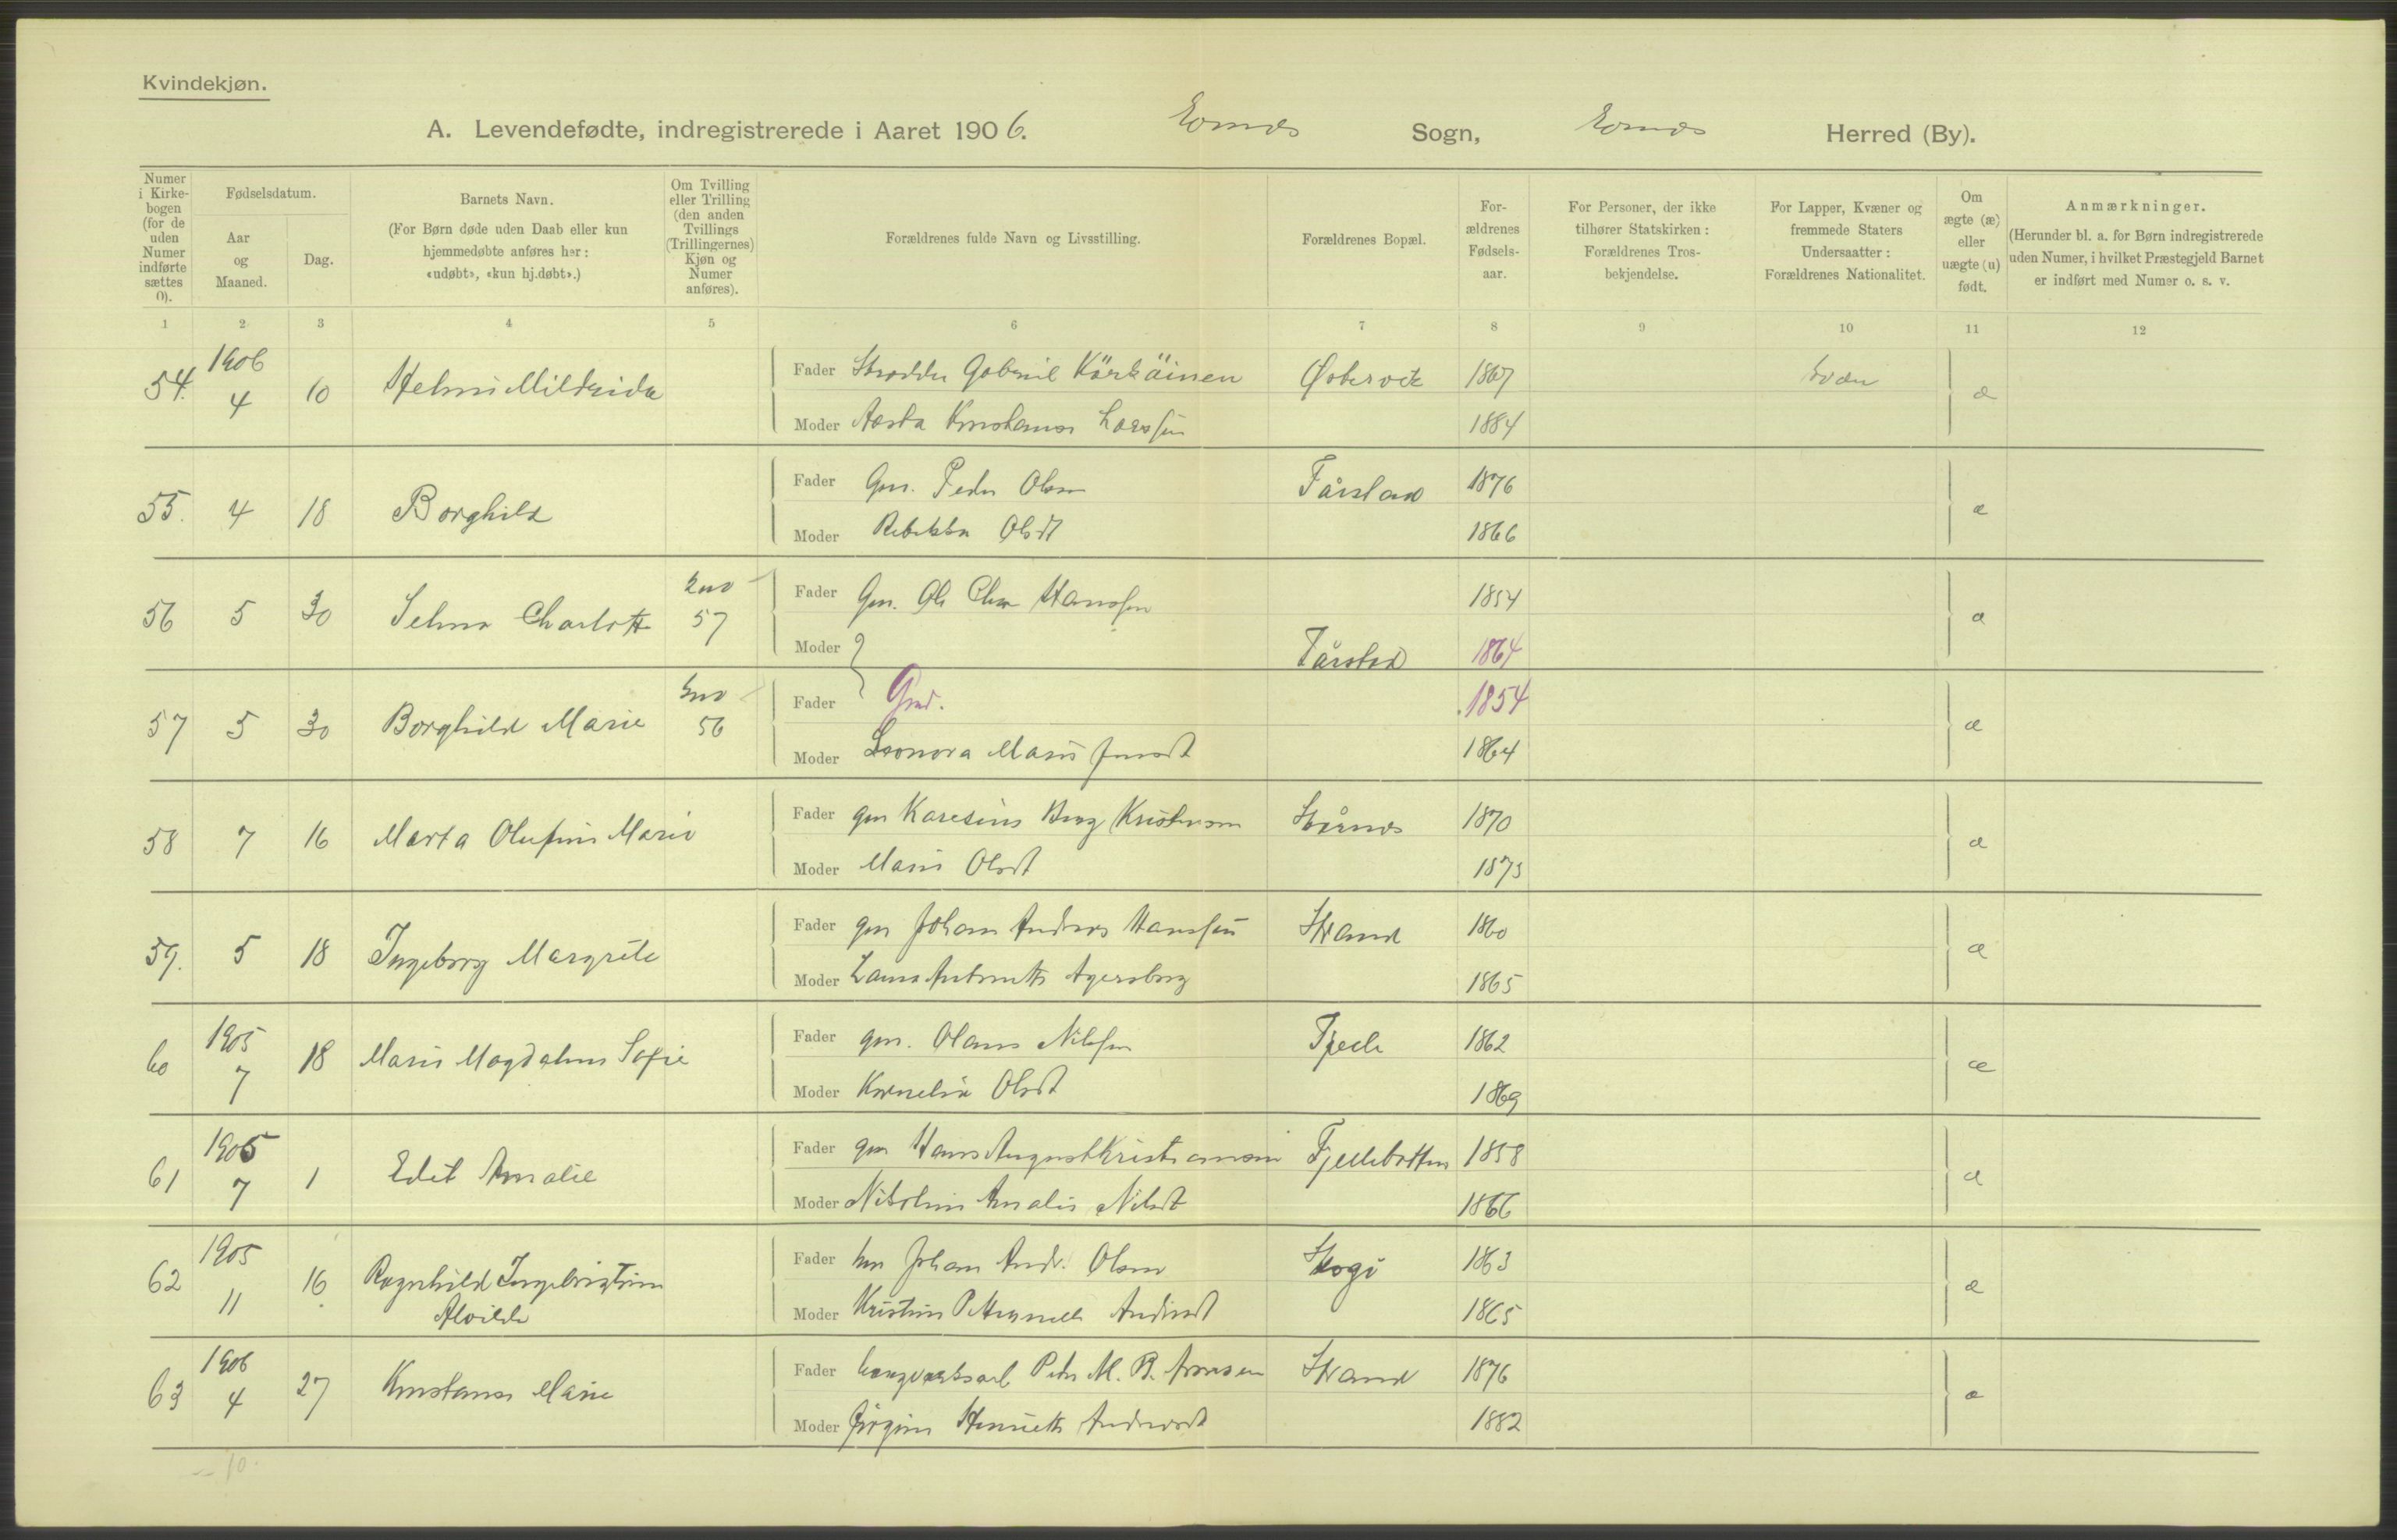 Kvindekjøn.
A. Levendefødte, indregistrerede i Aaret 1906. Sogn, Herred (By).
Numer i Kirkebogen (for de uden Numer indførte sættes 0).
Fødselsdatum.
Aar og Maaned.
Dag.
Barnets Navn.
(For Børn døde uden Daab eller kun hjemmedøbte anføres her: «udøbt», «kun hj.døbt».)
Om Tvilling eller Trilling (den anden Tvillings (Trillingernes) Kjøn og Numer anføres).
Forældrenes fulde Navn og Livsstilling.
Forældrenes Bopæl.
Forældrenes Fødselsaar.
For Personer, der ikke tilhører Statskirken: Forældrenes Trosbekjendelse.
For Lapper, Kvæner og fremmede Staters Undersaatter: Forældrenes Nationalitet.
Om ægte (æ) eller uægte (u) født.
Anmærkninger.
(Herunder bl. a. for Børn indregistrerede uden Numer, i hvilket Præstegjeld Barnet er indført med Numer o. s. v.
1 2 3 4 5 6 7 8 9 10 11 12
54. 1906 4 10 Helmi Mildrida Fader Gabriel Kärkäinen 1867 æ
Moder Aasta Konstanse Larssen 1884
55. 4 18 Borghild Fader Gm. Peder Olsen Fårstad 1876 æ
Moder Rebekka Olsdt 1866
56 5 30 Selma Charlotte 57 Fader Gm. Ole Chr Hanssen 1854 æ
Moder Fårstad 1864
57 5 30 Borghild Marie 56 Fader Gmd. 1854 æ
Moder Leonora Marie 1864
58 7 16 Marta Olufine Marie Fader gm Karesius Berg Kristensen 1870 æ
Moder Marie Olsdt 1873
59. 5 18 Ingeborg Margrete Fader gm Johan Andreas Hanssen Strand 1860 æ
Moder Agersborg 1865
60 1905 7 18 Marie Magdalene Sofie Fader gm. Olaus Nilssen 1862 æ
Moder Kornelia Olsdt 1869
61 1905 7 1 Edit Amalie Fader gm Hans August Kristiansen Fjeldbotten 1858 æ
Moder Nikoline Amalie Nilsdt 1866
62 1905 11 16 Ragnhild Ingebrigtine Alvilde Fader Johan Andr. Olsen 1863 æ
Moder Kristine Petternelle Andersdt 1865
63 1906 4 27 Konstanse Marie Fader Peder M. B. Arnesen Strand 1876 æ
Moder Jørgine Henriette Andersdt 1882
10.